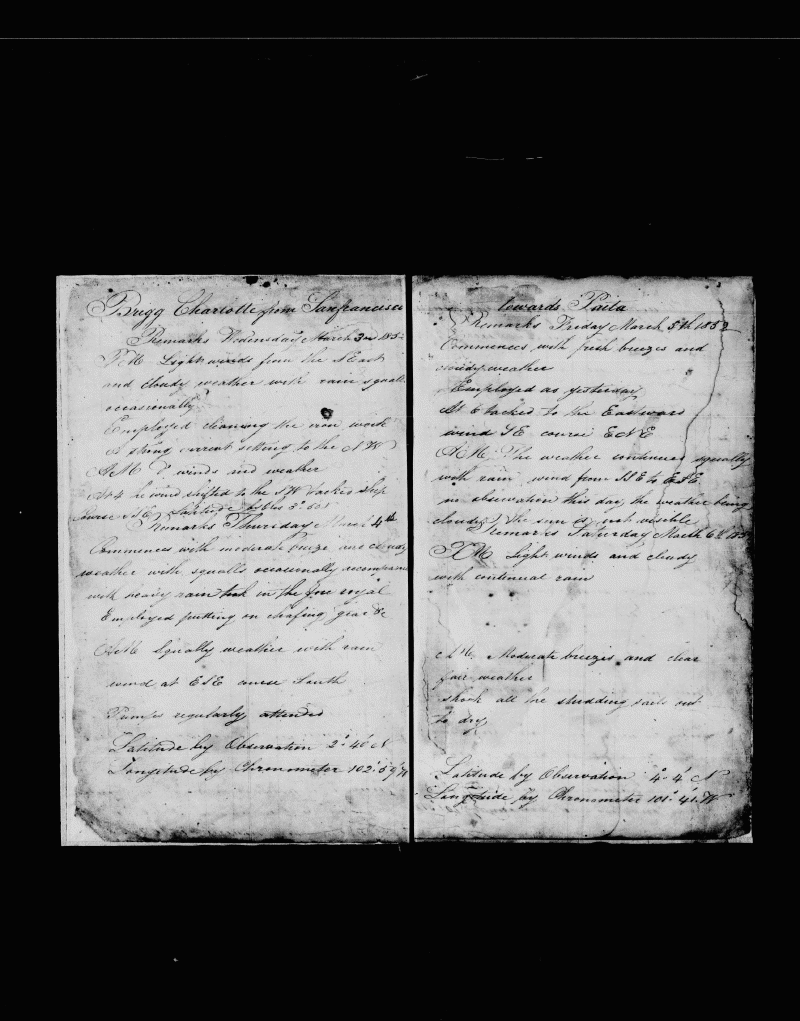 Brigg Charlotte from Sanfrancisco
Remarks Wedinsday March 3rd 185
P.M. Light winds from the N East
and cloudy weather with rain squalls
occasionally
Employed cleaning the iron work
A strong current setting to the N W
A.M. winds and weather
At 4 he wind shifted to the S W tacked ship
Course S E Latitude by obs 3° 50
Remarks Thursday March 4th
Commences with moderate breeze and cloudy
weather with squalls occasionally accompani
with heavy rain took in the fore royal
Employed putting on chafing gear &c
A.M. Squally weather with rain
wind at ESE course South
Pumps regularly attended
Latitude by Observation 2° 40' N
Longitude by Chronometer 102° 59' W
towards Paita
Remarks Friday March 5th 1852
Commences with fresh breezes and
cloudy weather
Employed as yesterday
At 6 tacked to the Eastward
wind SE course ENE
A.M. The weather continues squally
with rain wind from SSE to ESE
no observation this day, the weather being
cloudy & the sun is not visible
Remarks Saturday March 6th 185
P.M. Light winds and cloudy
with continual rain
A.M. Moderate breezes and clear
fair weather
shook all the studding sails out
to dry
Latitude by Observation 4° 4' N
Longitude by Chronometer 101° 41' W